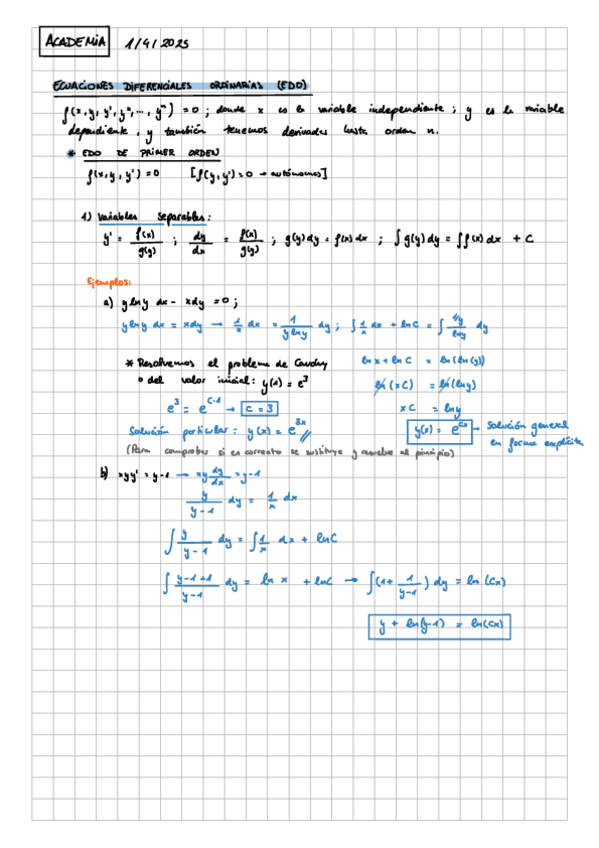 ACADEMIA 1/4/2025
ECUACIONES DIFERENCIALES ORDINARIAS (EDO)
f(x, y, y', y'', ..., yⁿ) = 0 ; donde x es la variable independiente ; y es la variable
dependiente, y también tenemos derivadas hasta orden n.
* EDO DE PRIMER ORDEN
f(x, y, y') = 0 [f(y, y') = 0 → autónomos]
1) Variables separables:
y' = f(x)/g(y) ; dy/dx = f(x)/g(y) ; g(y) dy = f(x) dx ; ∫g(y) dy = ∫f(x) dx + C
Ejemplos:
a) y ln y dx - x dy = 0 ;
y ln y dx = x dy → 1/x dx = 1/(y ln y) dy ; ∫1/x dx + ln C = ∫(1/y)/(ln y) dy
* Resolvemos el problema de Cauchy
o del valor inicial: y(1) = e³
ln x + ln C = ln(ln(y))
ln(xC) = ln(ln y)
e³ = e^(C·1) → C = 3
xC = ln y
Solución particular: y(x) = e^(3x)
y(x) = e^(Cx) → Solución general
en forma explícita
(Para comprobar si es correcto se sustituye y vuelve al principio)
b) xyy' = y-1 → xy dy/dx = y-1
y/(y-1) dy = 1/x dx
∫ y/(y-1) dy = ∫ 1/x dx + ln C
∫ (y-1+1)/(y-1) dy = ln x + ln C → ∫(1 + 1/(y-1)) dy = ln(Cx)
y + ln(y-1) = ln(Cx)